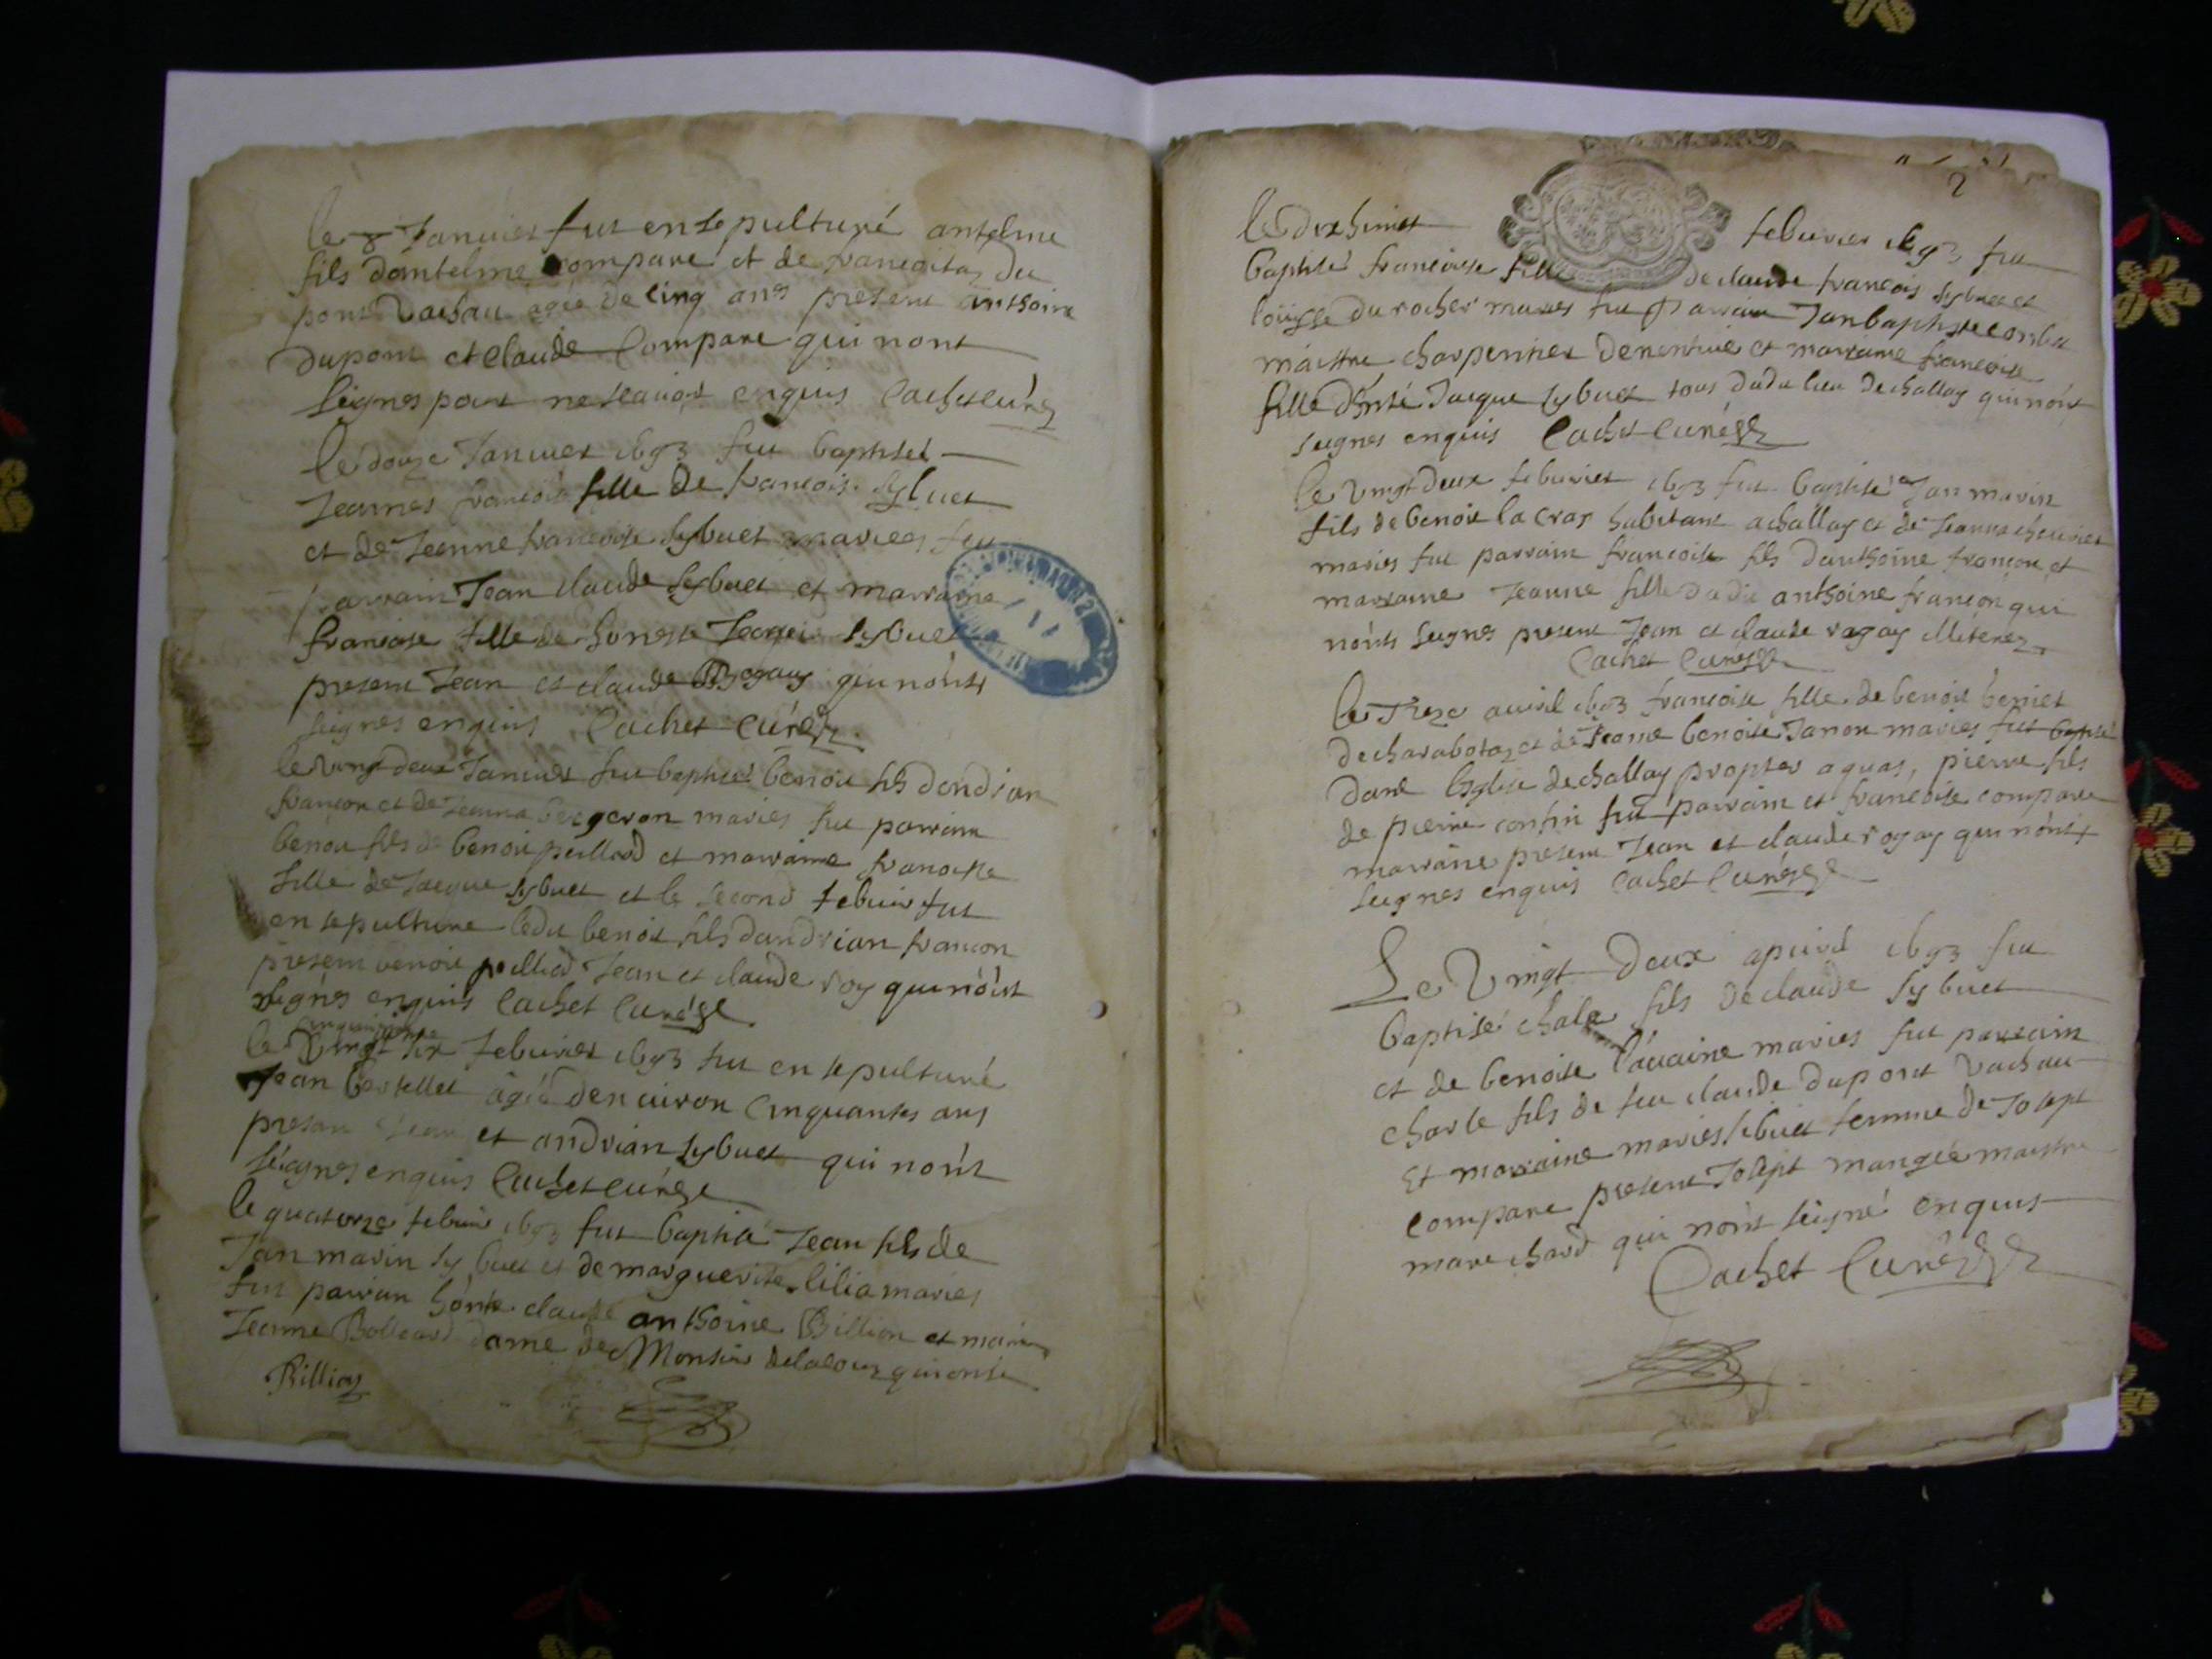 le 8 Januier fut ensepulturé antelme
fils dantelme Compare et de francoita du
pont Vachau agée de cinq ans present anthoine
dupont et Claude Compare qui nont
signes pour ne scauoir enquis Cachet curé
le douze Januier 1693 fut baptisee
Jeannes francoise fille de francois Sybuet
et de Jeanne francoise Sybuet maries fut
parrain Jean claude Sybuet et marraine
francoise fille de honeste Jacque Sybuet
present Jean et claude Rogay qui nónts
signes enquis Cachet curé
le Vingt deux Januier fut baptise benoit fils dandrian
francon et de Jeanna bergeron maries fut parrain
benoit fils de benoit peilliod et marraine francoise
fille de Jacque Sybuet et le second febuier fut
ensepulture ledit benoit fils dandrian francon
present benoit peilliod Jean et claude roy qui nónt
signés enquis Cachet Curé
le febuier 1693 fut ensepulturé
Jean bertellet agéé denuiron Cinquantes ans
presan Jean et andrian Sybuet qui nont
signes enquis Cachet curé
le quatorze febuier 1693 fut baptisé Jean fils de
Jan marin Sybuet et de marguerite lilia maries
fut parrain honte claude anthoine Billion et marine
Jeanne dame de Monsieur delacour qui ont
Billion
2
le dix huict febuier 1693 fut
baptisé francoise fille de claude francois Sybuet et
loüisse du rocher maries fut parrain Jan baptiste combet
maittre charpentier denentuie et marraine francoise
fille dhnté Jacque Sybuet tous dudu lieu de challay qui nónt
signes enquis Cachet Curé
le Vingt deux feburies 1693 fut baptisé Jan marin
fils de benoit la cray habitant a challay et de Jeanne cheurier
maries fut parrain francoise fils danthoine francon et
marraine Jeanne fille dudit anthoine francon qui
nónts signes present Jean et claude rogay illiterez
Cachet Curé
le Treze auvril 1693 francoise fille de benoit beniet
de charabotay et de Jeanne benoite Janon maries fut baptisé
dans leglise de challay propter aquas, pierre fils
de pierre confin fut parrain et francoise compare
marraine present Jean et claude rogay qui nónts
signes enquis Cachet Curé
Le Vingt deux apuril 1693 fut
baptisé chale fils de claude Sybuet
et de benoite maries fut parrain
charle fils de feu claude dupont Vachau
Et marraine maries Sibuet femme de Josept
compare present Josept mangée maistre
marechard qui nónt signé enquis
Cachet Curé